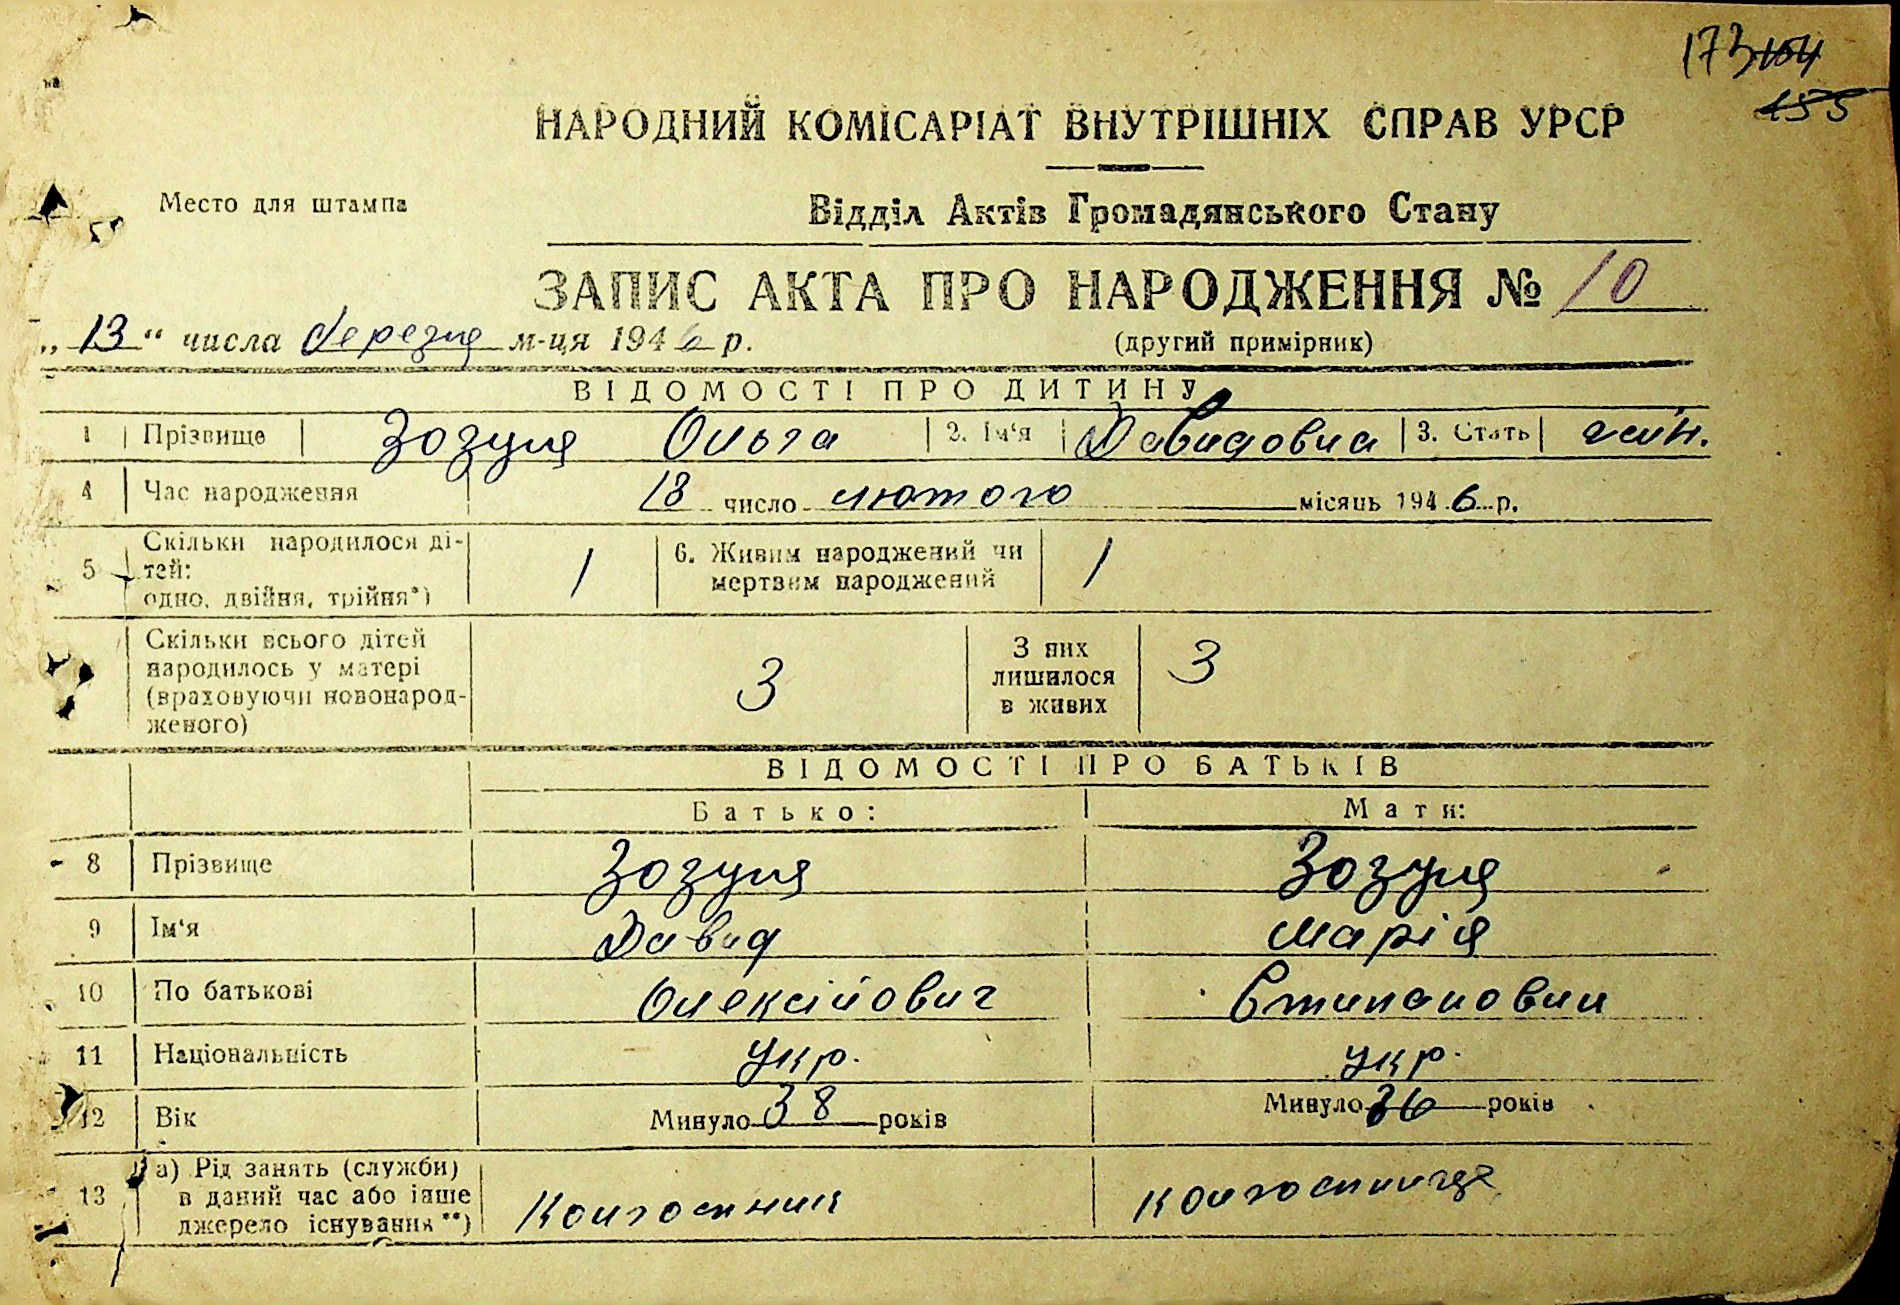 173 164
155
НАРОДНИЙ КОМІСАРІАТ ВНУТРІШНІХ СПРАВ УРСР
Место для штампа
Відділ Актів Громадянського Стану
ЗАПИС АКТА ПРО НАРОДЖЕННЯ № 10
„13“ числа березня м-ця 1946 р.
(другий примірник)
ВІДОМОСТІ ПРО ДИТИНУ
1 Прізвище Зозуля Ольга 2. Ім‘я Давидовна 3. Стать жін.
4 Час народження 18 число лютого місяць 1946 р.
5 Скільки народилося ді-
тей:
одно, двійня, трійня*) 1
6. Живим народжений чи
мертвим народжений 1
Скільки всього дітей
народилось у матері
(враховуючи новонарод-
женого) 3
З них
лишилося
в живих 3
ВІДОМОСТІ ПРО БАТЬКІВ
Батько: Мати:
8 Прізвище Зозуля Зозуля
9 Ім‘я Давид Марія
10 По батькові Олексійович
11 Національність укр. укр.
12 Вік Минуло 38 років Минуло 36 років
13 а) Рід занять (служби)
в даний час або інше
джерело існування**) Колгоспник Колгоспниця